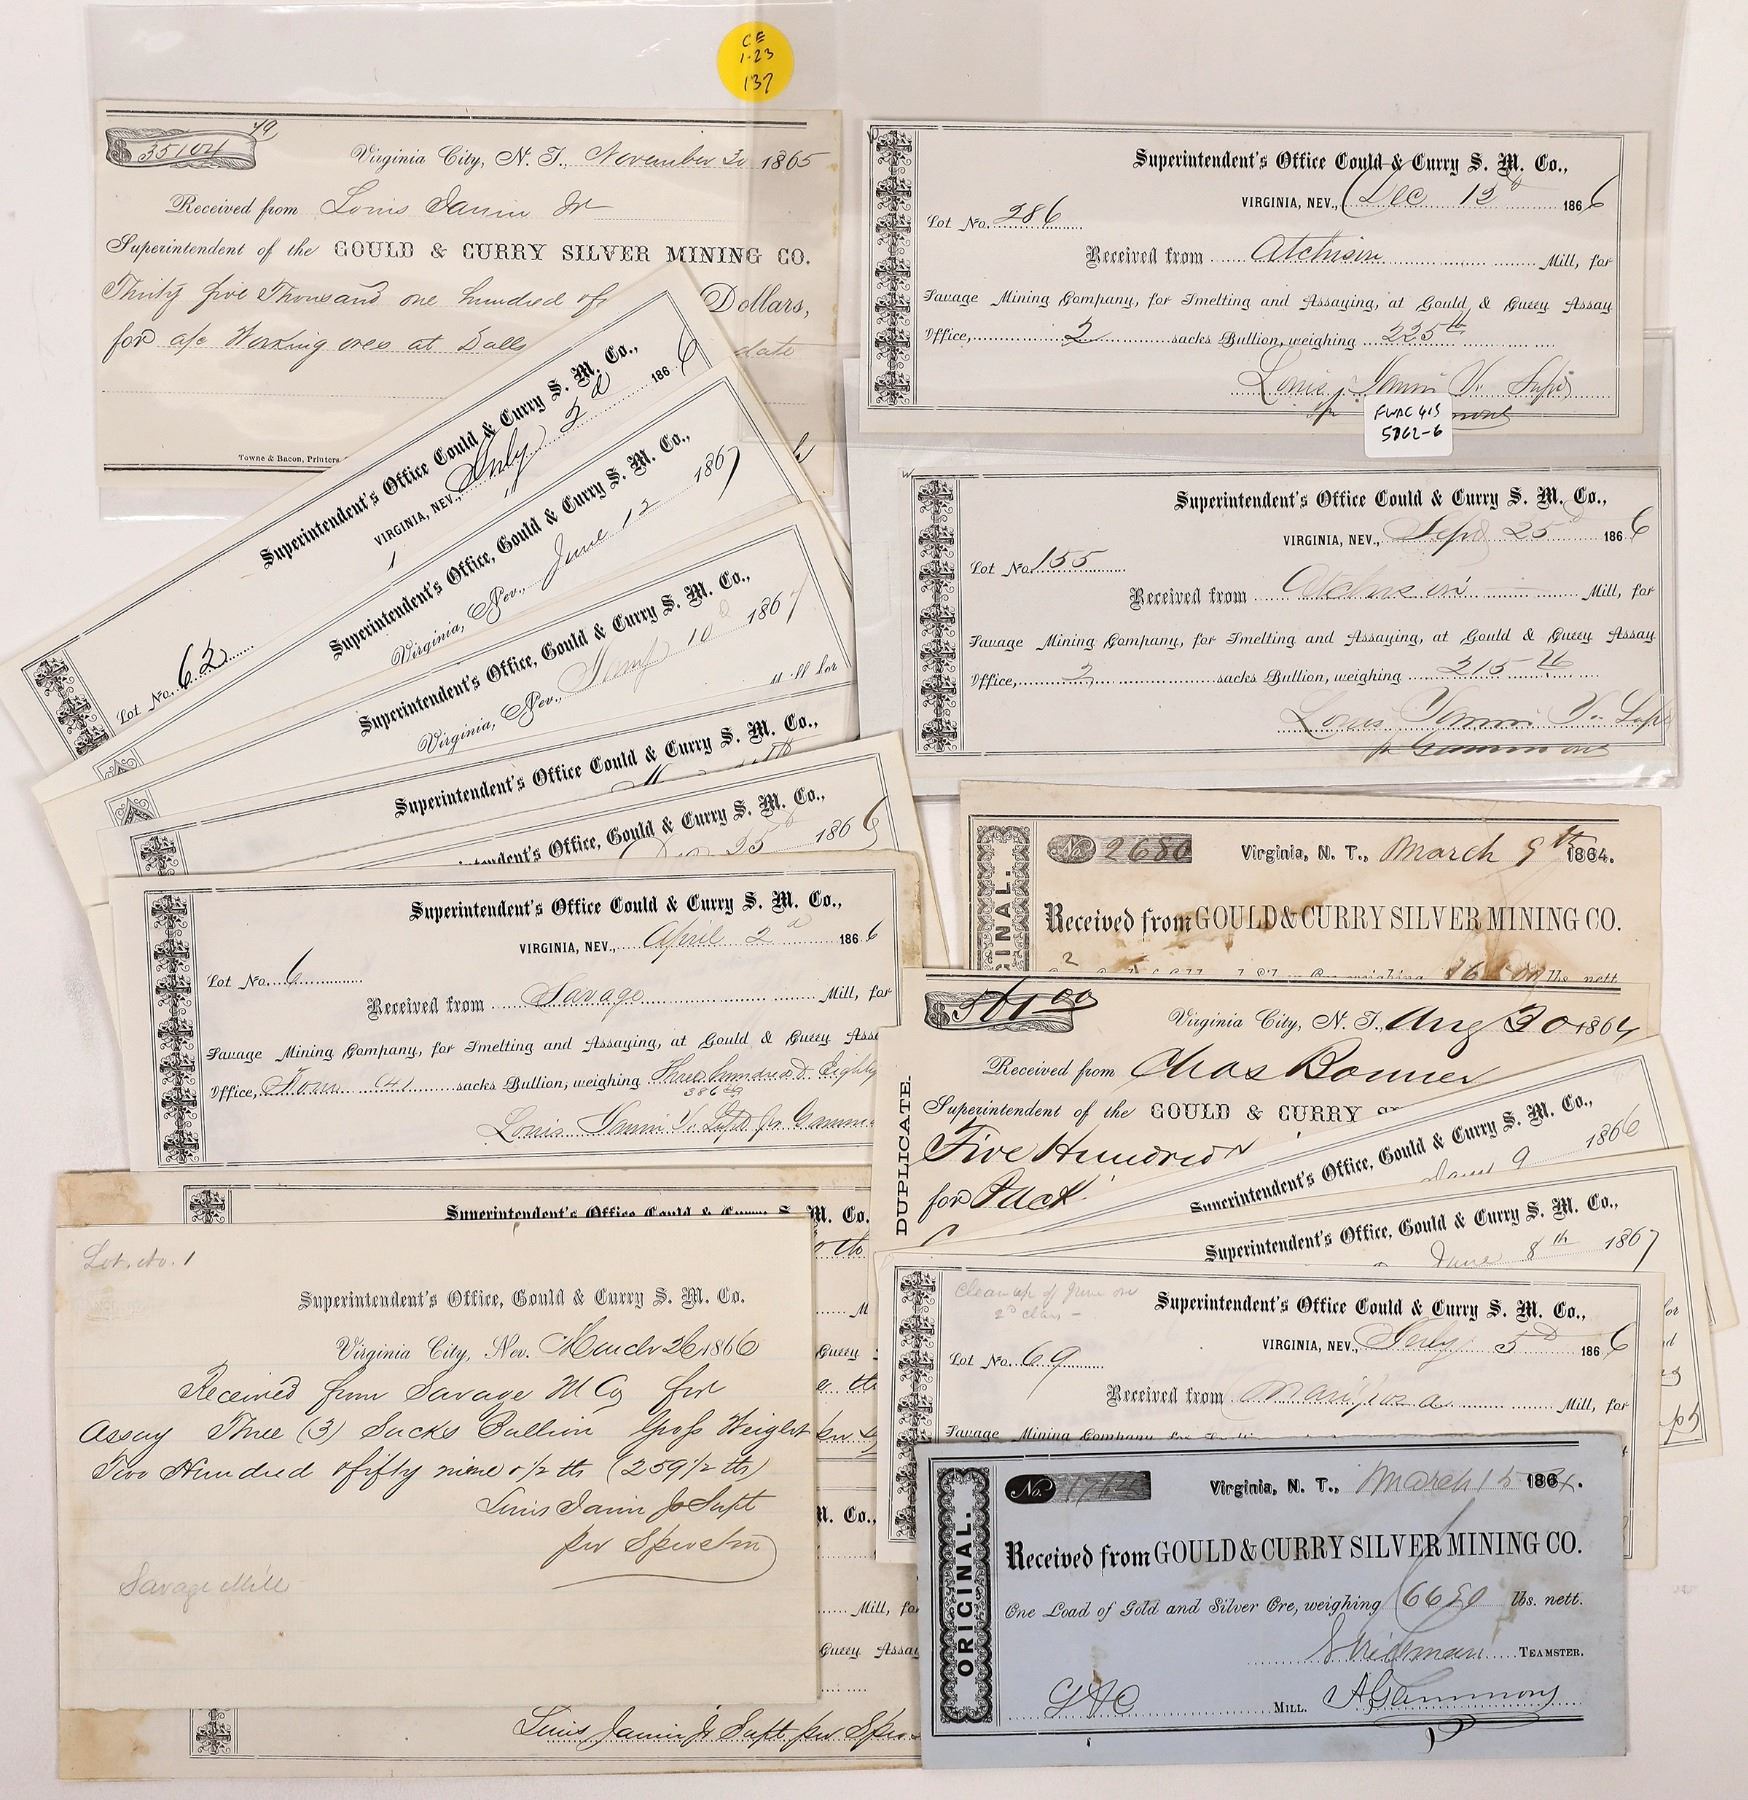 CE
1-23
137
$ 35104 79
Virginia City, N. T., November 30 1865
Received from Louis Janin Jr
Superintendent of the GOULD & CURRY SILVER MINING CO.
Thirty five Thousand one hundred
Dollars,
for a/c Working ores at
date
Towne & Bacon, Printers
Superintendent's Office Gould & Curry S. M. Co.,
VIRGINIA, NEV., Dec 12 1866
Lot No. 286
Received from Atchison Mill, for
Savage Mining Company, for Smelting and Assaying, at Gould & Curry Assay
Office, 2 sacks Bullion, weighing 225
Louis Janin Jr. Supt
FWAC 415
5062-6
Superintendent's Office Gould & Curry S. M. Co.,
VIRGINIA, NEV., Sept 25 1866
Lot No. 155
Received from Atchison Mill, for
Savage Mining Company, for Smelting and Assaying, at Gould & Curry Assay
Office, 2 sacks Bullion, weighing 215
Louis Janin Jr. Supt
pr Gammons
Superintendent's Office Gould & Curry S. M. Co.,
VIRGINIA, NEV., July 2d 1866
Lot No. 62
Superintendent's Office, Gould & Curry S. M. Co.,
Virginia, Nev., June 12 1867
Superintendent's Office, Gould & Curry S. M. Co.,
Virginia, Nev., 10 1867
Superintendent's Office Gould & Curry S. M. Co.,
Office, Gould & Curry S. M. Co.,
25 1866
Superintendent's Office Gould & Curry S. M. Co.,
VIRGINIA, NEV., April 2d 1866
Lot No. 6
Received from Savage Mill, for
Savage Mining Company, for Smelting and Assaying, at Gould & Curry
Office, Four (4) sacks Bullion, weighing Three hundred Eighty
386
Louis Janin Jr. Supt pr
ORIGINAL.
No 2680
Virginia, N. T., March 9th 1864.
Received from GOULD & CURRY SILVER MINING CO.
lbs. nett
DUPLICATE.
$ 501.00
Virginia City, N. T., Aug 30 1864
Received from Chas Bonner
Superintendent of the GOULD & CURRY
Five Hundred
for
Superintendent's Office, Gould & Curry S. M. Co.,
9 1866
Superintendent's Office, Gould & Curry S. M. Co.,
June 8th 1867
Clean up of June on
2d class -
Superintendent's Office Gould & Curry S. M. Co.,
VIRGINIA, NEV., July 5 1866
Lot No. 69
Received from Mariposa Mill, for
Savage Mining Company
Superintendent's Office
M. Co.
Lot. No. 1
Superintendent's Office, Gould & Curry S. M. Co.
Virginia City, Nev. March 26 1866
Received from Savage M Co for
Assay Three (3) Sacks Bullion Gross Weight
Two Hundred & fifty nine & 1/2 lbs (259 1/2 lbs)
Louis Janin Jr Supt
per
Savage Mill
Curry
M. Co.,
Mill,
Curry Assay
Louis Janin Jr Supt per
ORIGINAL.
No.
Virginia, N. T., March 15 1864.
Received from GOULD & CURRY SILVER MINING CO.
One Load of Gold and Silver Ore, weighing 6650 lbs. nett.
TEAMSTER.
G & C MILL. A Gammons